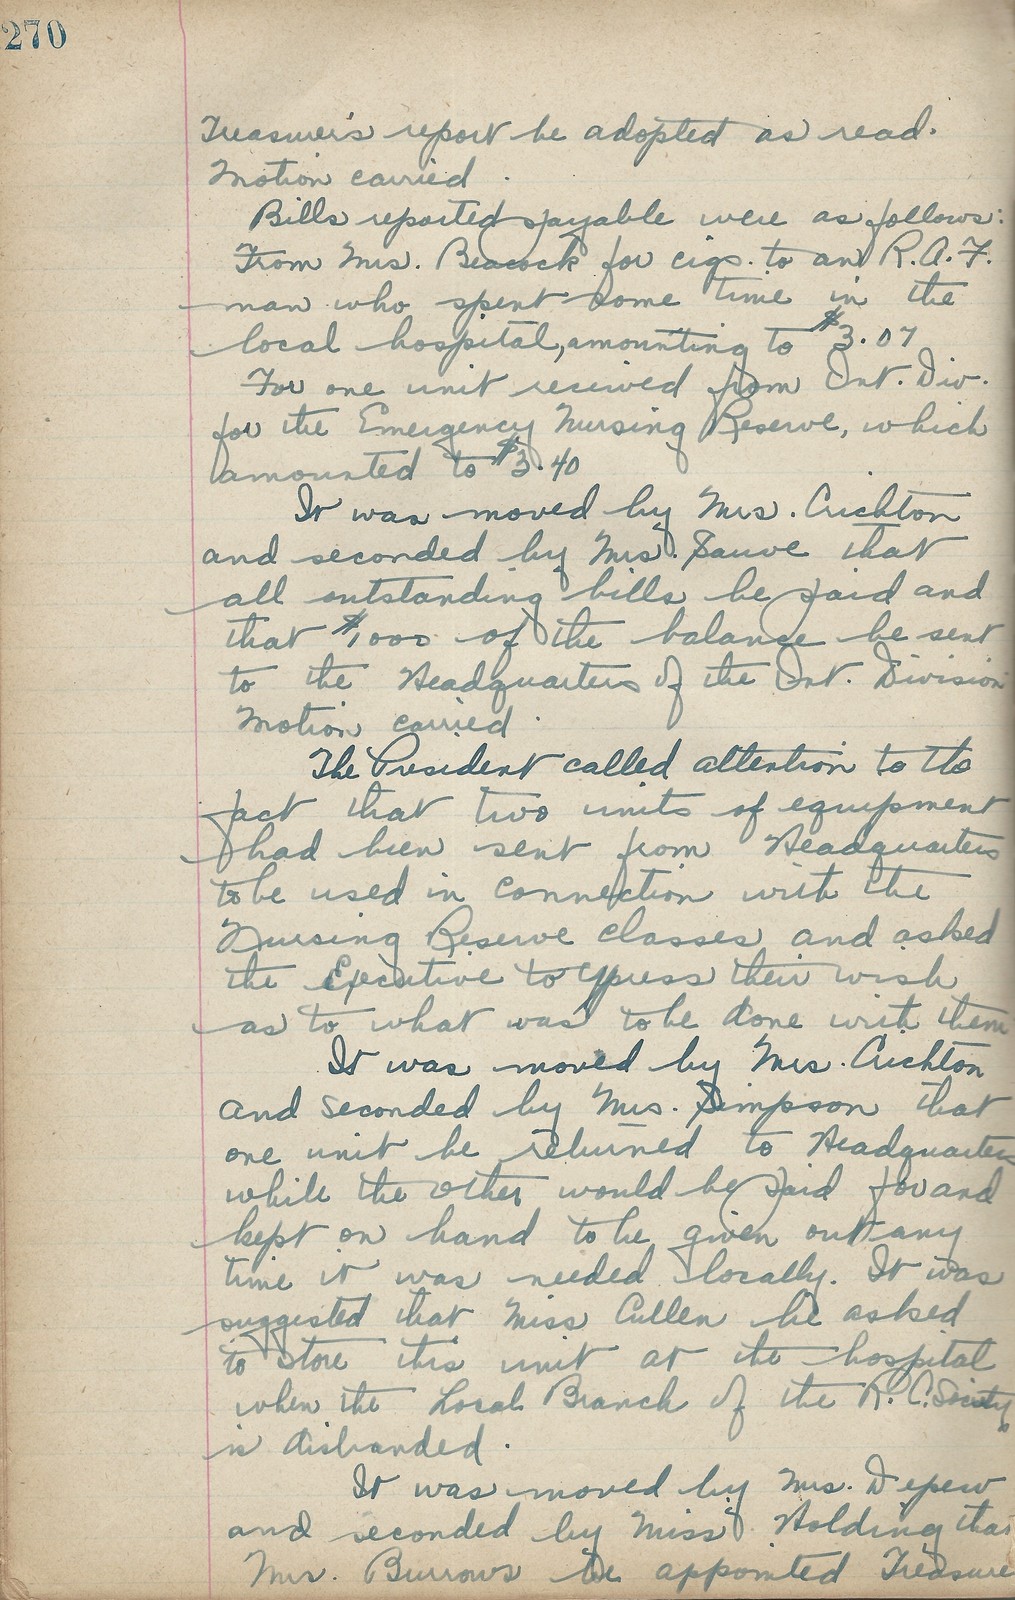 270
Treasurer's report be adopted as read.
Motion carried.
Bills reported payable were as follows:
From Mrs. Beacock for cigs. to an R.A.F.
man who spent some time in the
local hospital, amounting to $3.07
For one unit received from Ont. Div.
for the Emergency Nursing Reserve, which
amounted to $3.40
It was moved by Mrs. Crichton
and seconded by Mrs. Sauve that
all outstanding bills be paid and
that $1000 of the balance be sent
to the Headquarters of the Ont. Division
Motion carried.
The President called attention to the
fact that two units of equipment
had been sent from Headquarters
to be used in connection with the
Nursing Reserve classes and asked
the Executive to express their wish
as to what was to be done with them
It was moved by Mrs. Crichton
and seconded by Mrs. Simpson that
one unit be returned to Headquarters
while the other would be paid for and
kept on hand to be given out any
time it was needed locally. It was
suggested that Miss Cullen be asked
to store this unit at the hospital
when the Local Branch of the R.C. Society
is disbanded.
It was moved by Mrs. Depew
and seconded by Miss Holding that
Mrs. Burrows be appointed Treasure